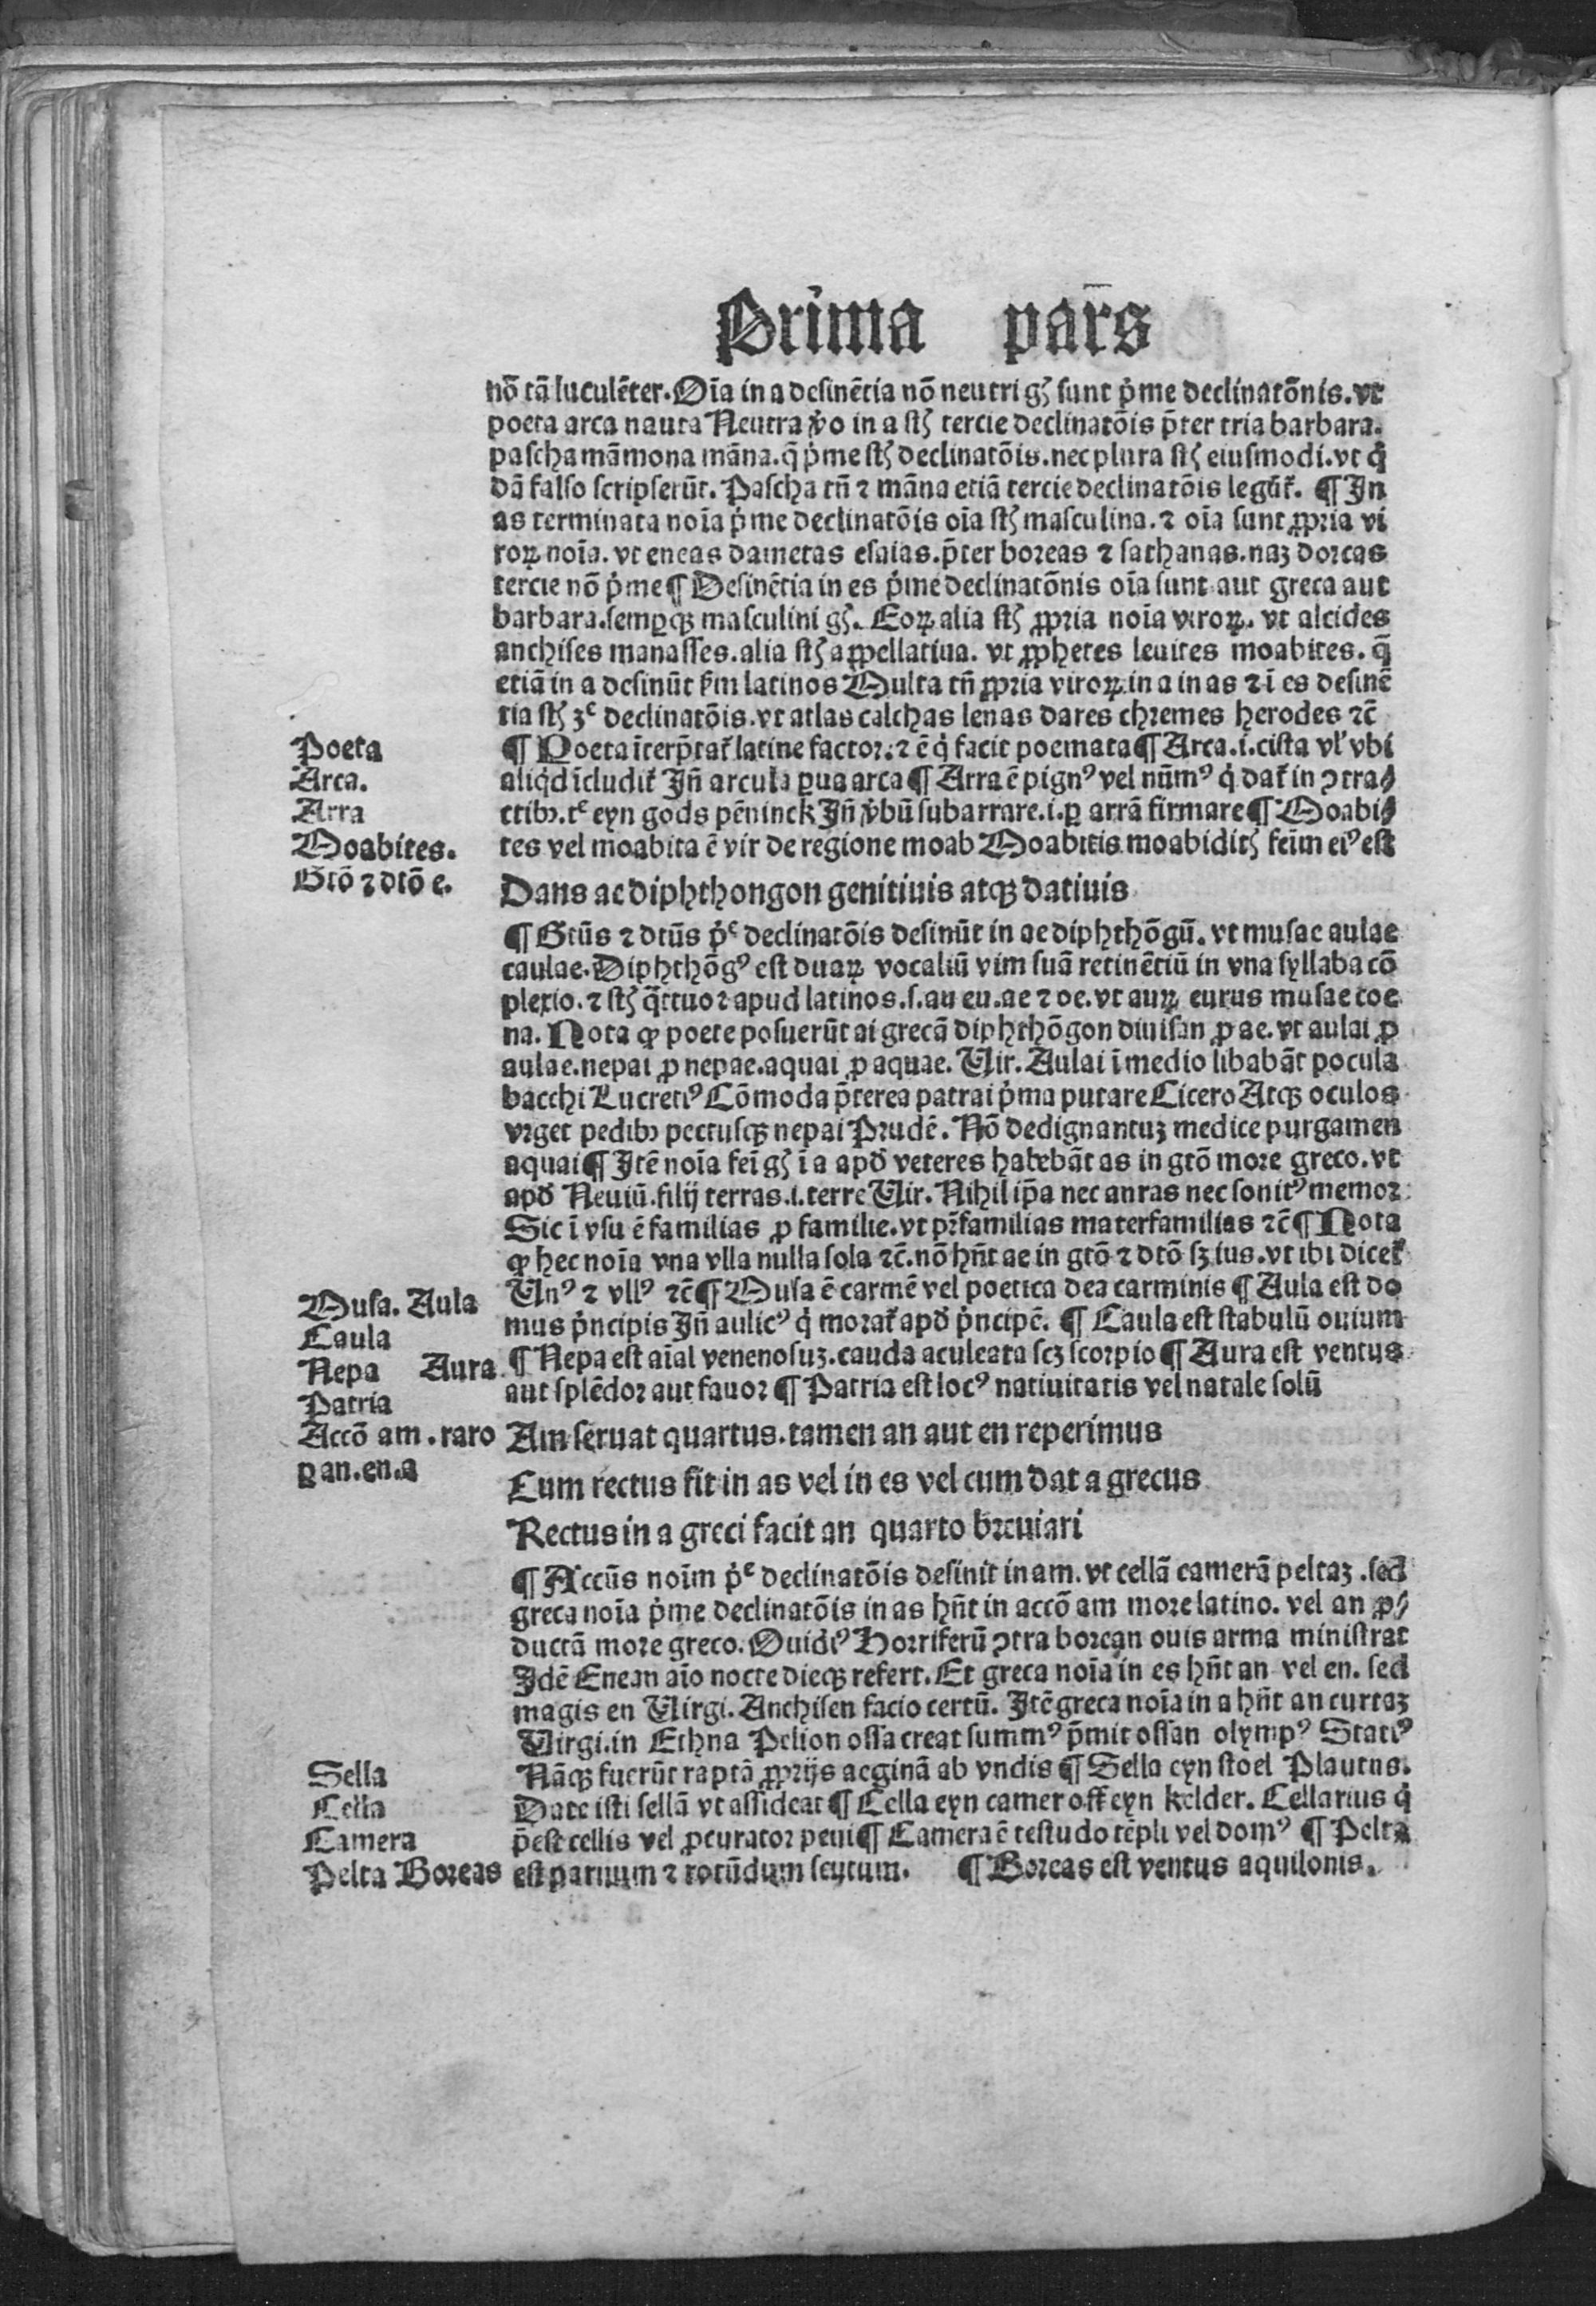 Prima pars
nō tā luculēter. Oīa in a desinētia nō neutri gꝭ sunt p̓me declinatōnis. vt
poeta arca nauta Neutra v̓o in a stꝭ tercie declinatōis p̄ter tria barbara.
pascha māmona māna. q̄ p̓me stꝭ declinatōis. nec plura stꝭ eiusmodi. vt q̓
dā falso scripserūt. Pascha tn̄ ⁊ māna etiā tercie declinatōis legūt᷑. ¶ In
as terminata noīa p̓me declinatōis oīa stꝭ masculina. ⁊ oīa sunt ꝓpria vi
roꝝ noīa. vt eneas dametas esaias. p̄ter boreas ⁊ sathanas. naꝫ dorcas
tercie nō p̓me ¶ Desinētia in es p̓me declinatōnis oīa sunt aut greca aut
barbara. semꝑqꝫ masculini gꝭ. Eoꝝ alia stꝭ ꝓpria noīa viroꝝ. vt alcides
anchises manasses. alia stꝭ appellatiua. vt ꝓphetes leuites moabites. q̄
etiā in a desinūt scd̓m latinos Multa tn̄ ꝓpria viroꝝ in a in as ⁊ ī es desinē
tia stꝭ ʒᵉ declinatōis. vt atlas calchas lenas dares chremes herodes ⁊c̄
Poeta
¶ Poeta īterp̄tat᷑ latine factor. ⁊ ē q̓ facit poemata ¶ Arca .i. cista vl̓ vbi
Arca.
aliq̓d īcludit᷑ Jn̄ arcula ꝑua arca ¶ Arra ē pignꝰ vel nūmꝰ q̓ dat᷑ in ꝯtra⸗
Arra
ctibꝫ. tᵉ eyn gods pēninck Jn̄ v̓bū subarrare .i. ꝑ arrā firmare ¶ Moabi⸗
Moabites.
tes vel moabita ē vir de regione moab Moabitis moabiditꝭ feīm eiꝰ est
Gtō ⁊ dtō e.
Dans ae diphthongon genitiuis atqꝫ datiuis
¶ Gtūs ⁊ dtūs p̓ᵉ declinatōis desinūt in ae diphthōgū. vt musae aulae
caulae. Diphthōgꝰ est duaꝝ vocaliū vim suā retinētiū in vna syllaba cō
plexio. ⁊ stꝭ q̄ttuor apud latinos .s. au eu. ae ⁊ oe. vt auꝝ eurus musae coe
na. Nota ꝙ poete posuerūt ai grecā diphthōgon diuisan ꝓ ae. vt aulai ꝓ
aulae. nepai ꝓ nepae. aquai ꝓ aquae. Vir. Aulai ī medio libabāt pocula
bacchi Lucretiꝰ Cōmoda p̄terea patrai p̓ma putare Cicero Atqꝫ oculos
vrget pedibꝫ pectusqꝫ nepai Prudē. Nō dedignantuꝫ medice purgamen
aquai ¶ Jtē noīa feī gꝭ ī a apd̓ veteres habebāt as in gtō more greco. vt
apd̓ Neuiū. filij terras .i. terre Vir. Nihil ip̄a nec auras nec sonitꝰ memor
Sic ī vsu ē familias ꝓ familie. vt pr̄familias materfamilias ⁊c̄ ¶ Nota
ꝙ hec noīa vna vlla nulla sola ⁊c̄. nō hn̄t ae in gtō ⁊ dtō sꝫ ius. vt ibi dicet᷑
Musa. Aula
Vnꝰ ⁊ vllꝰ ⁊c̄ ¶ Musa ē carmē vel poetica dea carminis ¶ Aula est do
Caula
mus p̓ncipis Jn̄ aulicꝰ q̓ morat᷑ apd̓ p̓ncipē. ¶ Caula est stabulū ouium
Nepa Aura
¶ Nepa est aīal venenosuꝫ. cauda aculeata scꝫ scorpio ¶ Aura est ventus
Patria
aut splēdor aut fauor ¶ Patria est locꝰ natiuitatis vel natale solū
Accō am. raro
Am seruat quartus. tamen an aut en reperimus
ꝑ an. en. a
Cum rectus fit in as vel in es vel cum dat a grecus
Rectus in a greci facit an quarto breuiari
¶ Accūs noīm p̓ᵉ declinatōis desinit in am. vt cellā camerā peltaꝫ. sed
greca noīa p̓me declinatōis in as hn̄t in accō am more latino. vel an ꝓ⸗
ductā more greco. Ouidiꝰ Horriferū ꝯtra borean ouis arma ministrat
Jdē Enean aīo nocte dieqꝫ refert. Et greca noīa in es hn̄t an vel en. sed
magis en Virgi. Anchisen facio certū. Jtē greca noīa in a hn̄t an curtaꝫ
Virgi. in Ethna Pelion ossa creat summꝰ p̄mit ossan olympꝰ Statiꝰ
Sella
Nāqꝫ fuerūt raptā ꝓprijs aeginā ab vndis ¶ Sella eyn stoel Plautus.
Cella
Date isti sellā vt assideat ¶ Cella eyn camer off eyn kelder. Cellarius q̓
Camera
p̄est cellis vel ꝓcurator peni ¶ Camera ē testudo tēpli vel domꝰ ¶ Pelta
Pelta Boreas
est paruum ⁊ rotūdum scutum. ¶ Boreas est ventus aquilonis.